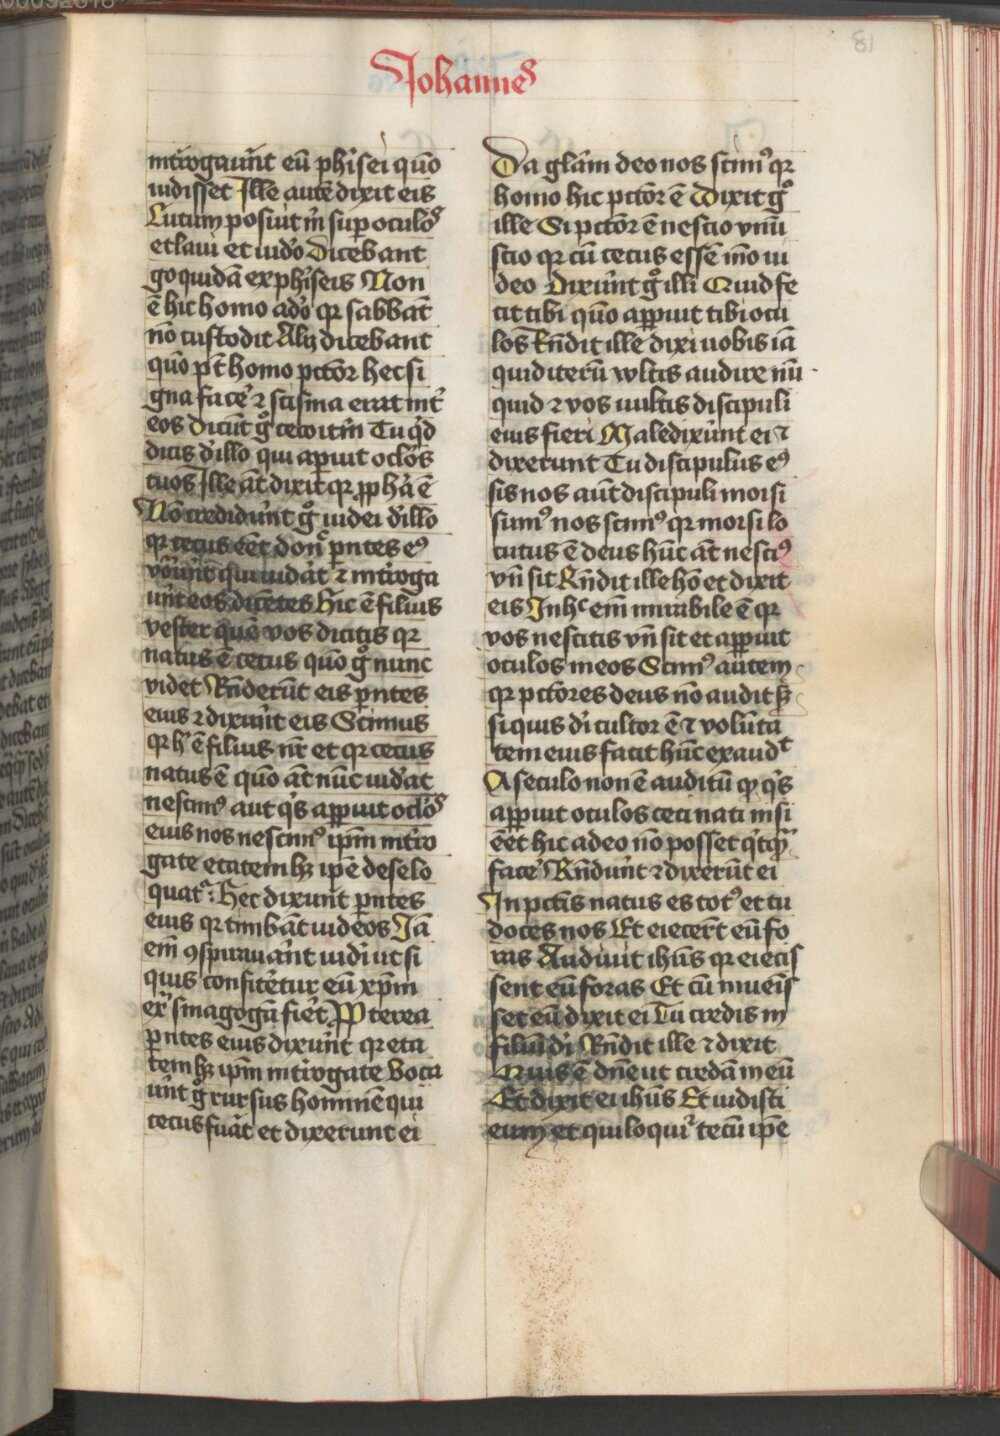 Johannes
int͛rogauer̄nt eū phi͛sei quō
uidisset Ille autē dixit eis
Lutum posiuit m̄ sup oculos
et laui et uid̕o Dicebant
go quidā ex phi͛seis Non
ē hic homo a do̕ qr sabbat̄
nō custodit Alij dicebant
quō pt̄ homo pctōr hec si
gna face͛ ⁊ scisma erat int͛
eos Dicūt gͦ ceco itm̄ Tu qͥd
dicis d̕illo qui aperuit oclōs
tuos Ille at̄ dixit qr ꝓpha̕ ē
Nō crediderūnt gͦ iudei d̕ illo
qr cecus eēt donͦ pn̄tes eꝰ
vocauer̄nt qui uid̕at ⁊ int͛roga
uer̄nt eos dicētes Hic ē filius
vester quē vos dicitis qr
natus ē cecus quō gͦ nunc
videt Rn̄derūt eis pn̄tes
eius ⁊ dixer̄nt eis Scimus
qr hͦ ē filius nr̄ et qr cecus
natus ē quō at̄ nūc uid̕at
nescimꝰ aut qͥs apperuit oclōs
eius nos nescimꝰ ipm̄ int͛ro
gate etatem hꝫ ipē de se lo
quatᷣ: Hec dixerunt pn̄tes
eius qr timebāt iudeos Jā
em̄ ꝯspirauer̄nt iudi̕ ut si
quis confite͛tur eū xp̄m
ex͛ sinagogā fiet͛ Propterea
pn̄tes eius dixer̄nt qr eta
tem hꝫ ipm̄ int͛rogate Voca
uer̄nt gͦ rursus hominē qui
cecus fua͛t et dixerunt ei
Da glām deo nos scimꝰ qr
homo hic pctōr ē Dixit gͦ
ille Si pctōr ē nescio vnū
scio qr cū cecus essē mō ui
deo Dixer̄nt gͦ illi Quid fe
cit tibi quō apperuit tibi ocu
los Rn̄dit ille dixi uobis iā
quid iterū wltis audire nū
quid ⁊ vos uultis discipuli
eius fieri Maledixer̄nt ei ⁊
dixerunt Tu discipulus eꝰ
sis nos aūt discipuli moisi
sumꝰ nos scimꝰ qr moisi lo
cutus ē deus hūc at̄ nescimꝰ
vn̄ sit Rn̄dit ille hō et dixit
eis In hͨ em̄ mirabile ē qr
vos nescitis vn̄ sit et apperuit
oculos meos Scimꝰ autem
qr pctōres deus nō audit sꝫ
si quis di̕ cultor ē ⁊ volūta
tem eius facit hūc exaudᵗ
A seculo non ē auditū qꝫ qͥs
apperuit oculos ceci nati nisi
eēt hic a deo nō posset qͥcqᷓ
face͛ Rn̄derūt ⁊ dixerūt ei
In pctīs natus es totꝰ et tu
doces nos Et eiecer̄t eū fo
ras Audiuit ihūs qr eiecis
sent eū foras Et cū inuenis
set eū dixit ei Tu credis in
filiū di̕ Rn̄dit ille ⁊ dixit
Quis ē dn̄e ut credā in eū
Et dixit ei ihūs Et uidisti
eum et qui loquitᷣ tecū ipē